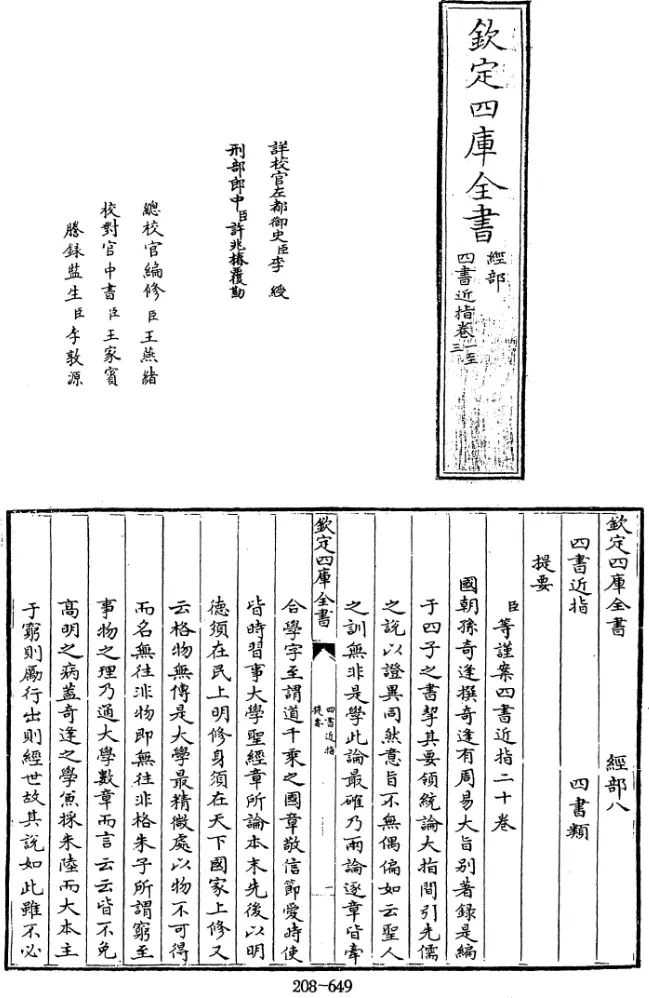 欽定四庫全書
經部
四書近指卷一至
三
詳校官左都御史臣李綬
刑部郎中臣許兆椿覆勘
總校官編修臣王燕緒
校對官中書臣王家賓
謄錄監生臣李敦源
欽定四庫全書 經部八
四書近指 四書類
提要
臣等謹案四書近指二十卷
國朝孫奇逢撰奇逢有周易大旨别著錄是編
于四子之書挈其要領統論大指間引先儒
之說以證異同然意旨不無偶偏如云聖人
之訓無非是學此論最確乃兩論逐章皆牽
欽定四庫全書
四書近指
提要
一
合學字至謂道千乘之國章敬信節愛時使
皆時習事大學聖經章所論本末先後以明
德須在民上明修身須在天下國家上修又
云格物無傳是大學最精微處以物不可得
而名無往非物即無往非格朱子所謂窮至
事物之理乃通大學數章而言云云皆不免
高明之病蓋奇逢之學兼採朱陸而大本主
于窮則勵行出則經世故其說如此雖不必
208-649